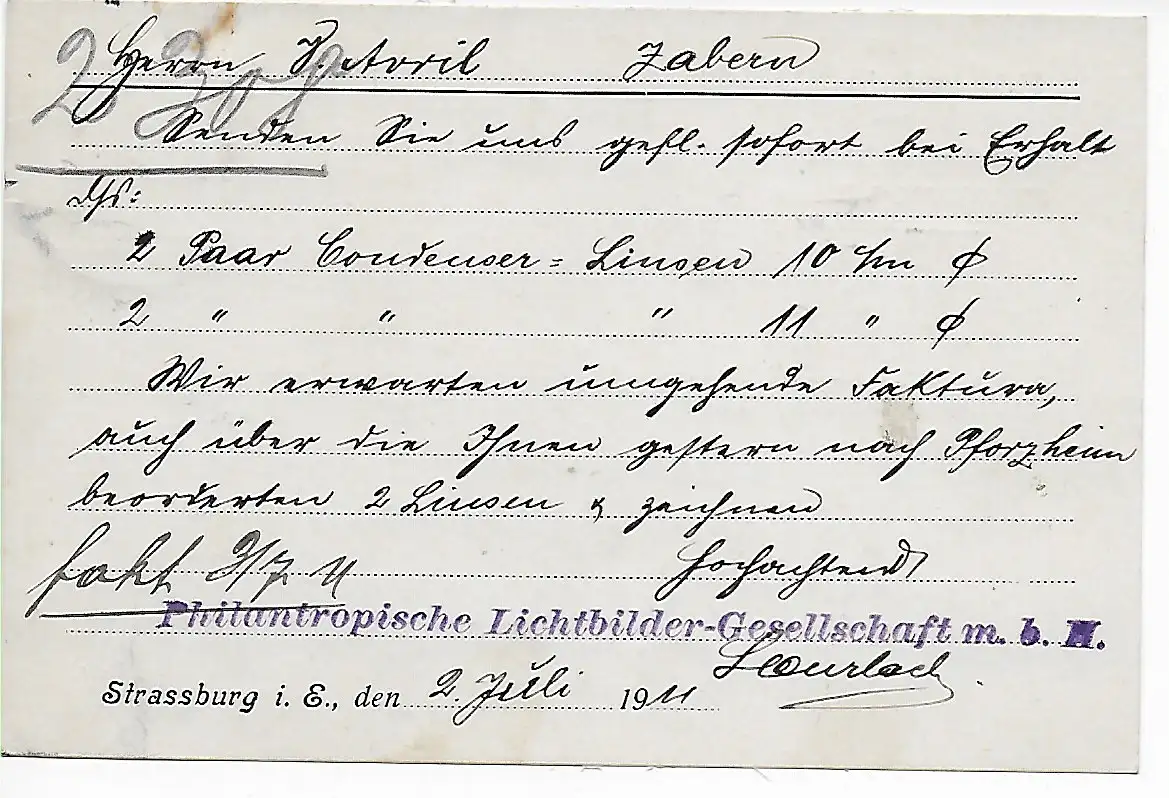 Herrn P. Avril Zabern
Senden Sie uns gefl. sofort bei Erhalt
ds:
2 Paar Condenser = Linsen 10 c/m ϕ
2 " " " 11 " ϕ
Wir erwarten umgehende Faktura,
auch über die Ihnen gestern nach Pforzheim
beorderten 2 Linsen & zeichnen
Hochachtend
fakt 3/7 11
Philantropische Lichtbilder-Gesellschaft m. b. H.
Strassburg i. E., den 2. Juli 1911